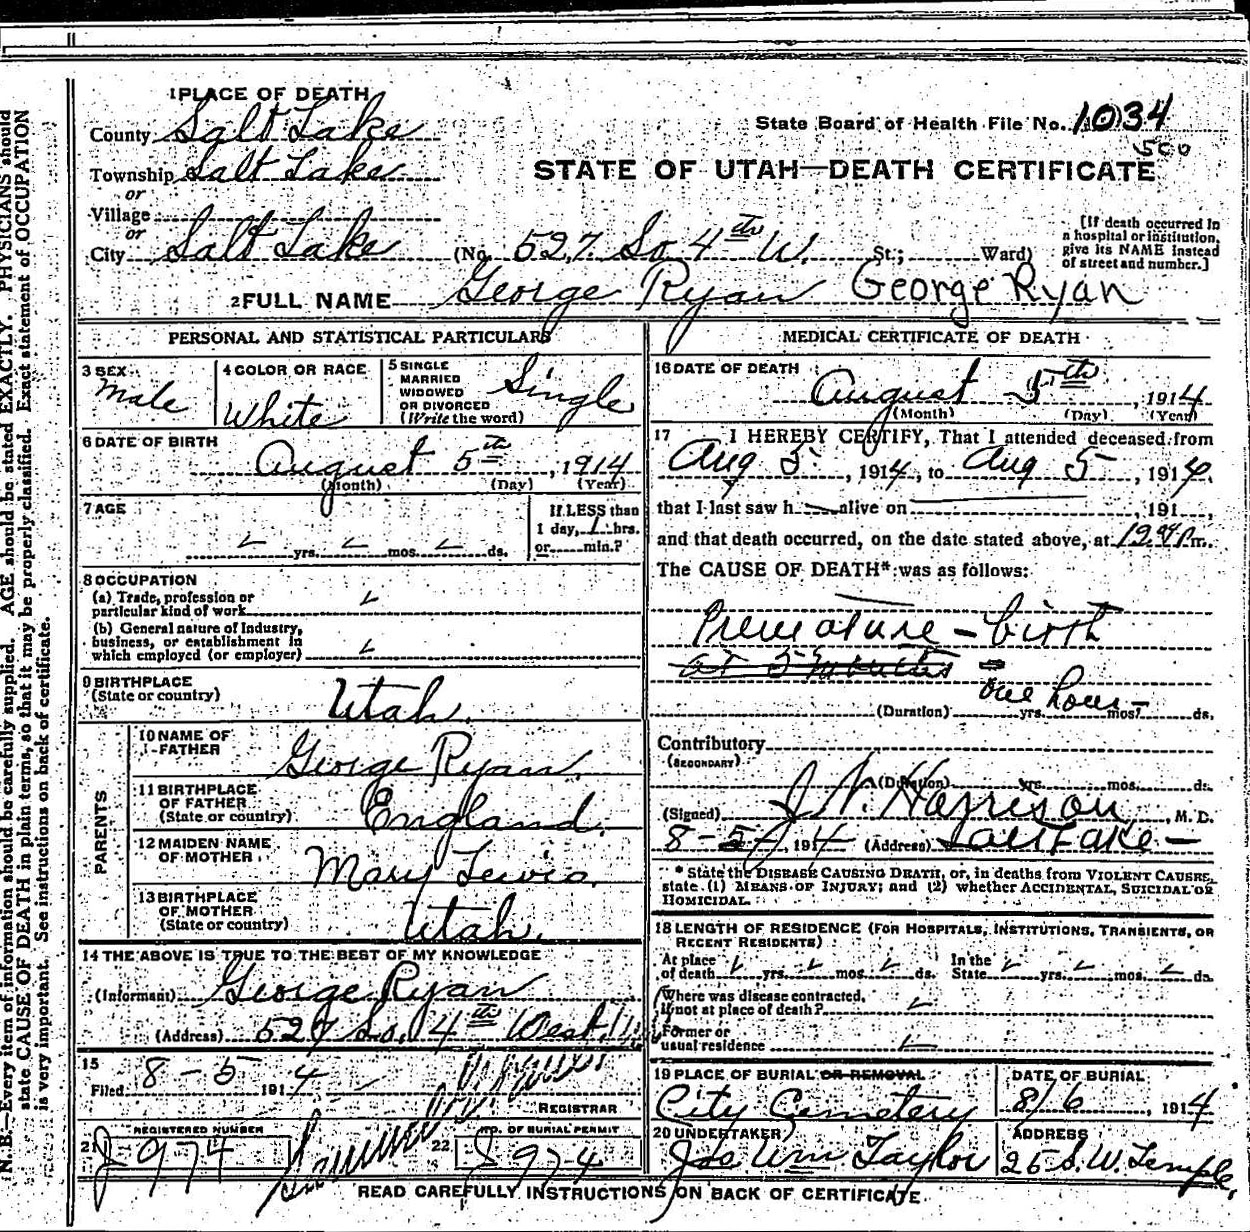 1 PLACE OF DEATH
County Salt Lake
State Board of Health File No. 1034
500
Township Salt Lake
STATE OF UTAH—DEATH CERTIFICATE
or
Village
or
City Salt Lake (No. 527 So 4th W. St.; Ward)
[If death occurred in
a hospital or institution,
give its NAME instead
of street and number.]
2 FULL NAME George Ryan George Ryan
PERSONAL AND STATISTICAL PARTICULARS
3 SEX Male
4 COLOR OR RACE White
5 SINGLE
MARRIED
WIDOWED
OR DIVORCED
(Write the word)
Single
6 DATE OF BIRTH
August 5th, 1914
(Month) (Day) (Year)
7 AGE
yrs. mos. ds.
If LESS than
1 day, 1 hrs.
or min.?
8 OCCUPATION
(a) Trade, profession or
particular kind of work
(b) General nature of Industry,
business, or establishment in
which employed (or employer)
9 BIRTHPLACE
(State or country)
Utah.
PARENTS
10 NAME OF
FATHER
George Ryan.
11 BIRTHPLACE
OF FATHER
(State or country)
England.
12 MAIDEN NAME
OF MOTHER
Mary Lewis.
13 BIRTHPLACE
OF MOTHER
(State or country)
Utah.
14 THE ABOVE IS TRUE TO THE BEST OF MY KNOWLEDGE
(Informant) George Ryan
(Address) 527 So. 4th West.
15
Filed 8-5 1914
REGISTRAR
21 REGISTERED NUMBER
J 974
22 NO. OF BURIAL PERMIT
J 974
MEDICAL CERTIFICATE OF DEATH
16 DATE OF DEATH
August 5th, 1914
(Month) (Day) (Year)
17 I HEREBY CERTIFY, That I attended deceased from
Aug 5, 1914, to Aug 5, 1914,
that I last saw h alive on , 191 ,
and that death occurred, on the date stated above, at m.
The CAUSE OF DEATH* was as follows:
Premature - birth
at 5 months =
one hour -
(Duration) yrs. mos. ds.
Contributory
(SECONDARY)
(Duration) yrs. mos. ds.
(Signed) J. N. Harrison, M. D.
8-5-, 1914 (Address) Salt Lake -
* State the DISEASE CAUSING DEATH, or, in deaths from VIOLENT CAUSES,
state (1) MEANS OF INJURY; and (2) whether ACCIDENTAL, SUICIDAL OR
HOMICIDAL.
18 LENGTH OF RESIDENCE (FOR HOSPITALS, INSTITUTIONS, TRANSIENTS, OR
RECENT RESIDENTS)
At place
of death yrs. mos. ds.
In the
State yrs. mos. ds.
Where was disease contracted,
if not at place of death?
Former or
usual residence
19 PLACE OF BURIAL OR REMOVAL
City Cemetery
DATE OF BURIAL
8/6, 1914
20 UNDERTAKER
Jos Wm Taylor
ADDRESS
25 S. W. Temple,
READ CAREFULLY INSTRUCTIONS ON BACK OF CERTIFICATE.
N. B.—Every item of information should be carefully supplied. AGE should be stated EXACTLY. PHYSICIANS should
state CAUSE OF DEATH in plain terms, so that it may be properly classified. Exact statement of OCCUPATION
is very important. See instructions on back of certificate.